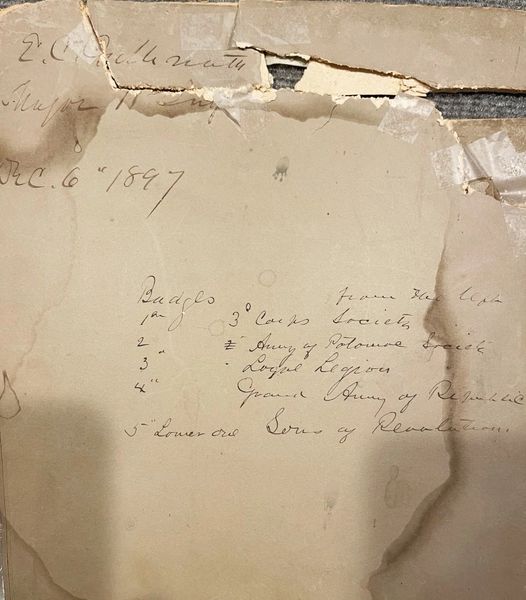 E. C.
Major
Dec. 6" 1897
Badges from the
1st 3d Corps Society
2 " Army of Potomac Society
3 " Loyal Legion
4" Grand Army of Republic
5" Lower one Sons of Revolution